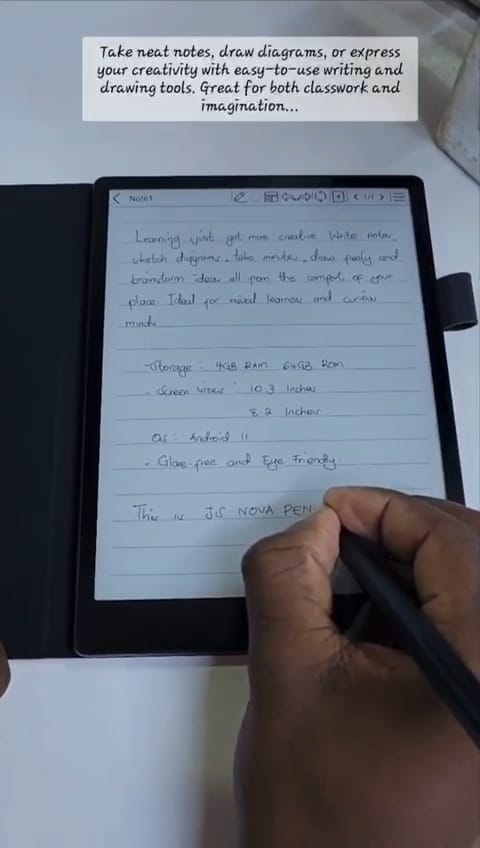 Take neat notes, draw diagrams, or express
your creativity with easy-to-use writing and
drawing tools. Great for both classwork and
imagination...
Note1
1/1
Learning just got more creative. Write notes,
sketch diagrams, take minutes, draw freely and
brainstorm ideas all from the comfort of your
place. Ideal for visual learners and curious
minds
-Storage: 4GB RAM 64GB Rom
- Screen sizes: 10.3 Inches
8.2 Inches
OS: Android 11
- Glare-free and Eye Friendly.
This is JS NOVA PEN